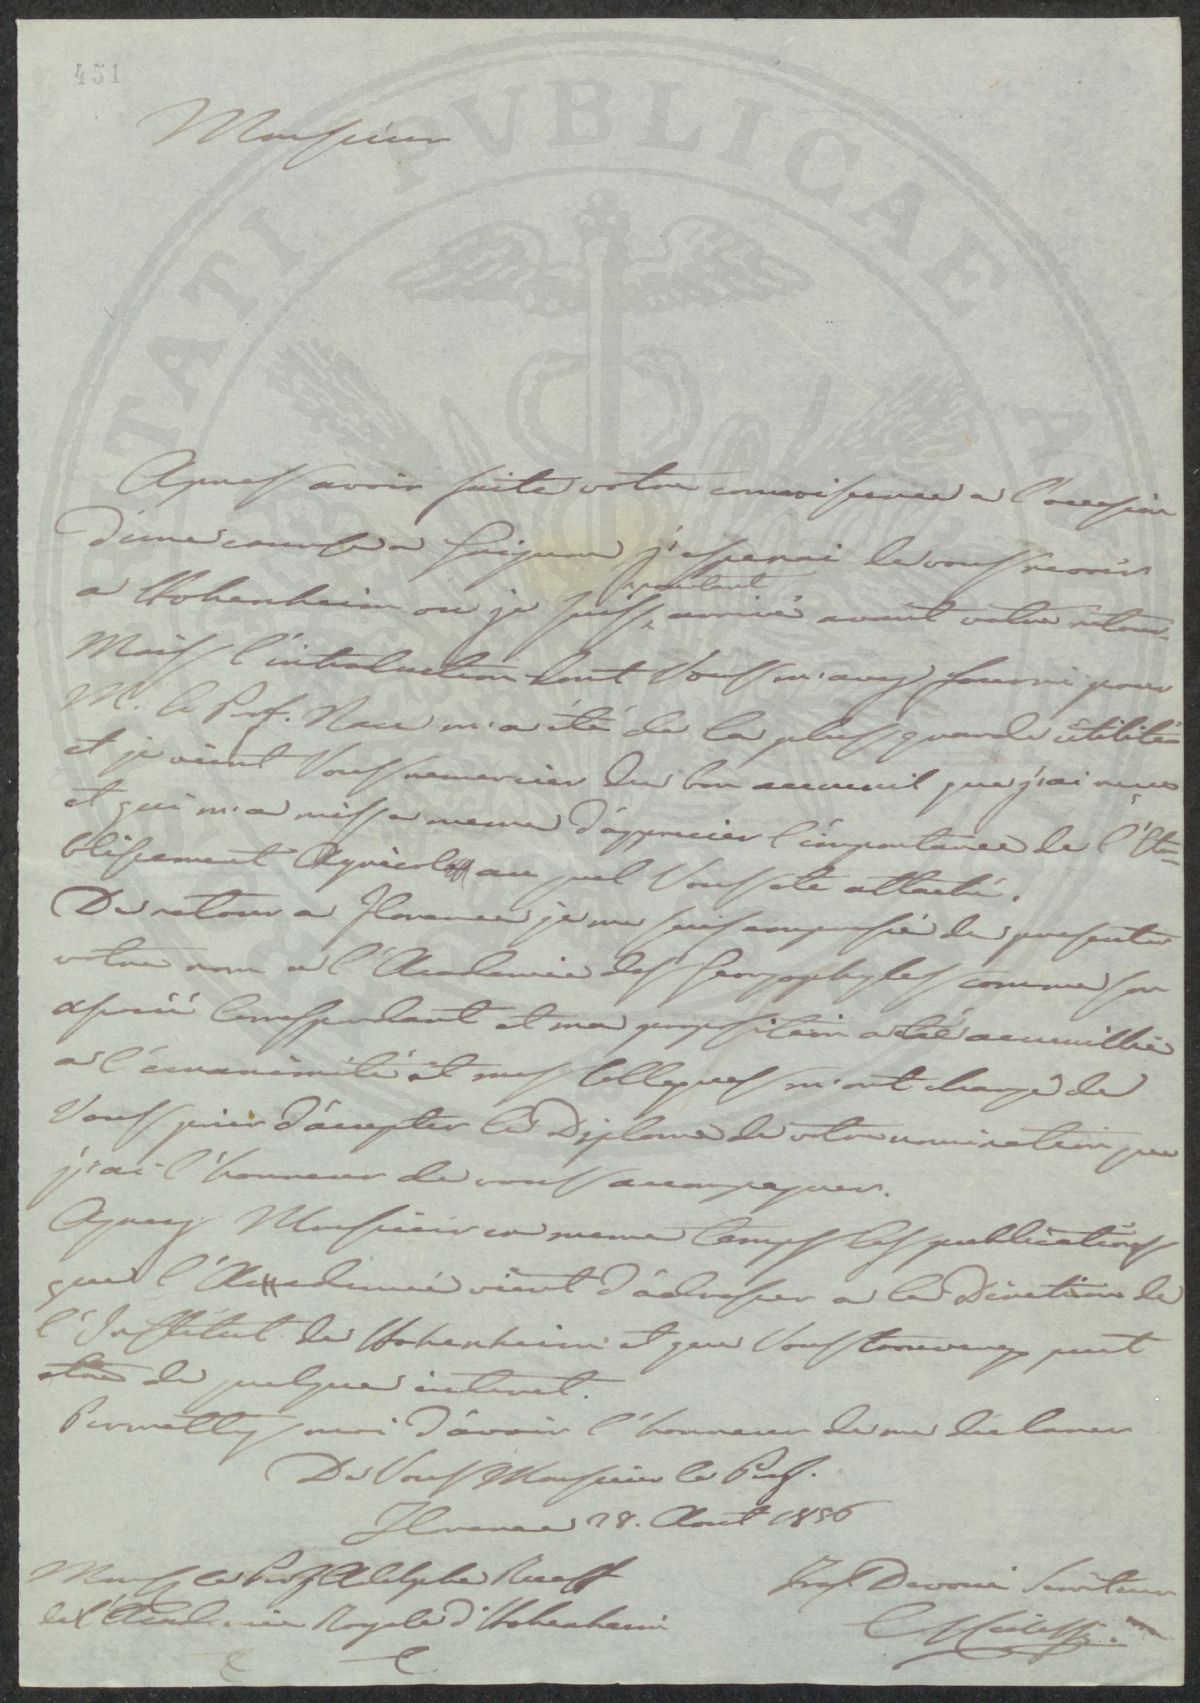 451
PROSPERITATI PVBLICAE AVGENDAE
Monsieur
Apres avoir faite votre connoissence a l'occasion
d'une course a Grignon, j'esperai de vous revoir
a Hohenheim ou je suis pourtant arrivé avant votre retour.
Mais l'introduction dont Vous m'avez fourni pour
M. le Prof. Nau m'a été de la plus grande utilité
et je vient Vous remercier du bon accueuil que j'ai recu
et qui m'a mis a meme d'apprecier l'importance de l'Eta-
blissement Agricole au quel Vous ete attaché.
De retour a Florence je me suis empressé de presenter
votre nom a l'Academie des Georgophyles comme son
associé Correspondant et ma proposition a été accueillie
a l'unanimité et mes Collegues m'ont chargé de
Vous prier d'accepter le Diplome de votre nomination que
j'ai l'honneur de vous accompagner.
Agreez Monsieur en meme temps les publications
que l'Academie vient d'adresser a la Direction de
l'Institut de Hohenheim et que Vous trouverez peut
etre de quelque interet.
Permettez moi d'avoir l'honneur de me declarer
De Vous Monsieur le Prof.
Florence 28. Aout 1856
Mons. le Prof Adolphe Rueff
de l'Academie Royale d'Hohenheim
Devoué Serviteur